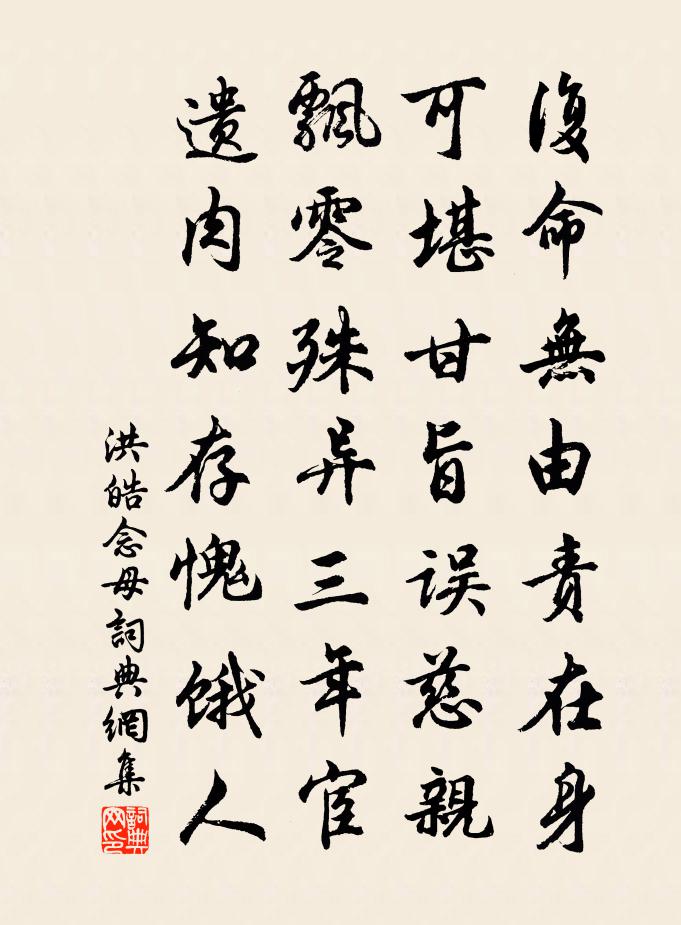 復命無由責在身
可堪甘旨误慈親
飄零殊异三年宦
遗肉知存愧饿人
洪皓念母詞典網集
詞典网印